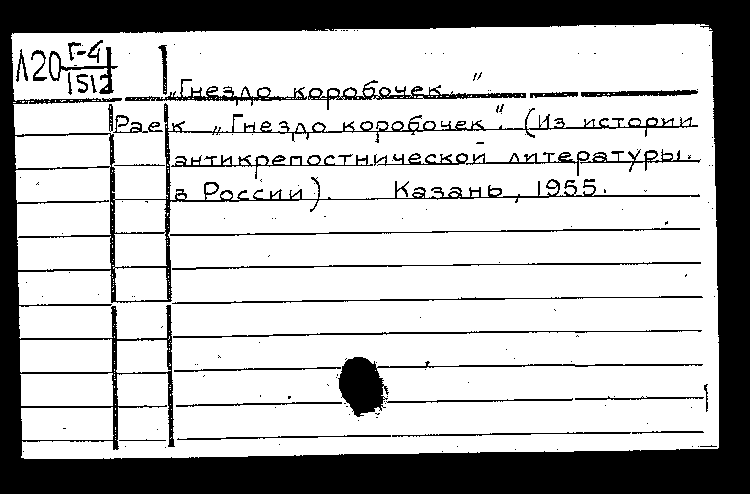 Л20 Г-4
1512
„Гнездо коробочек..."
Раек „Гнездо коробочек". (Из истории
антикрепостнической литературы.
в России). Казань, 1955.